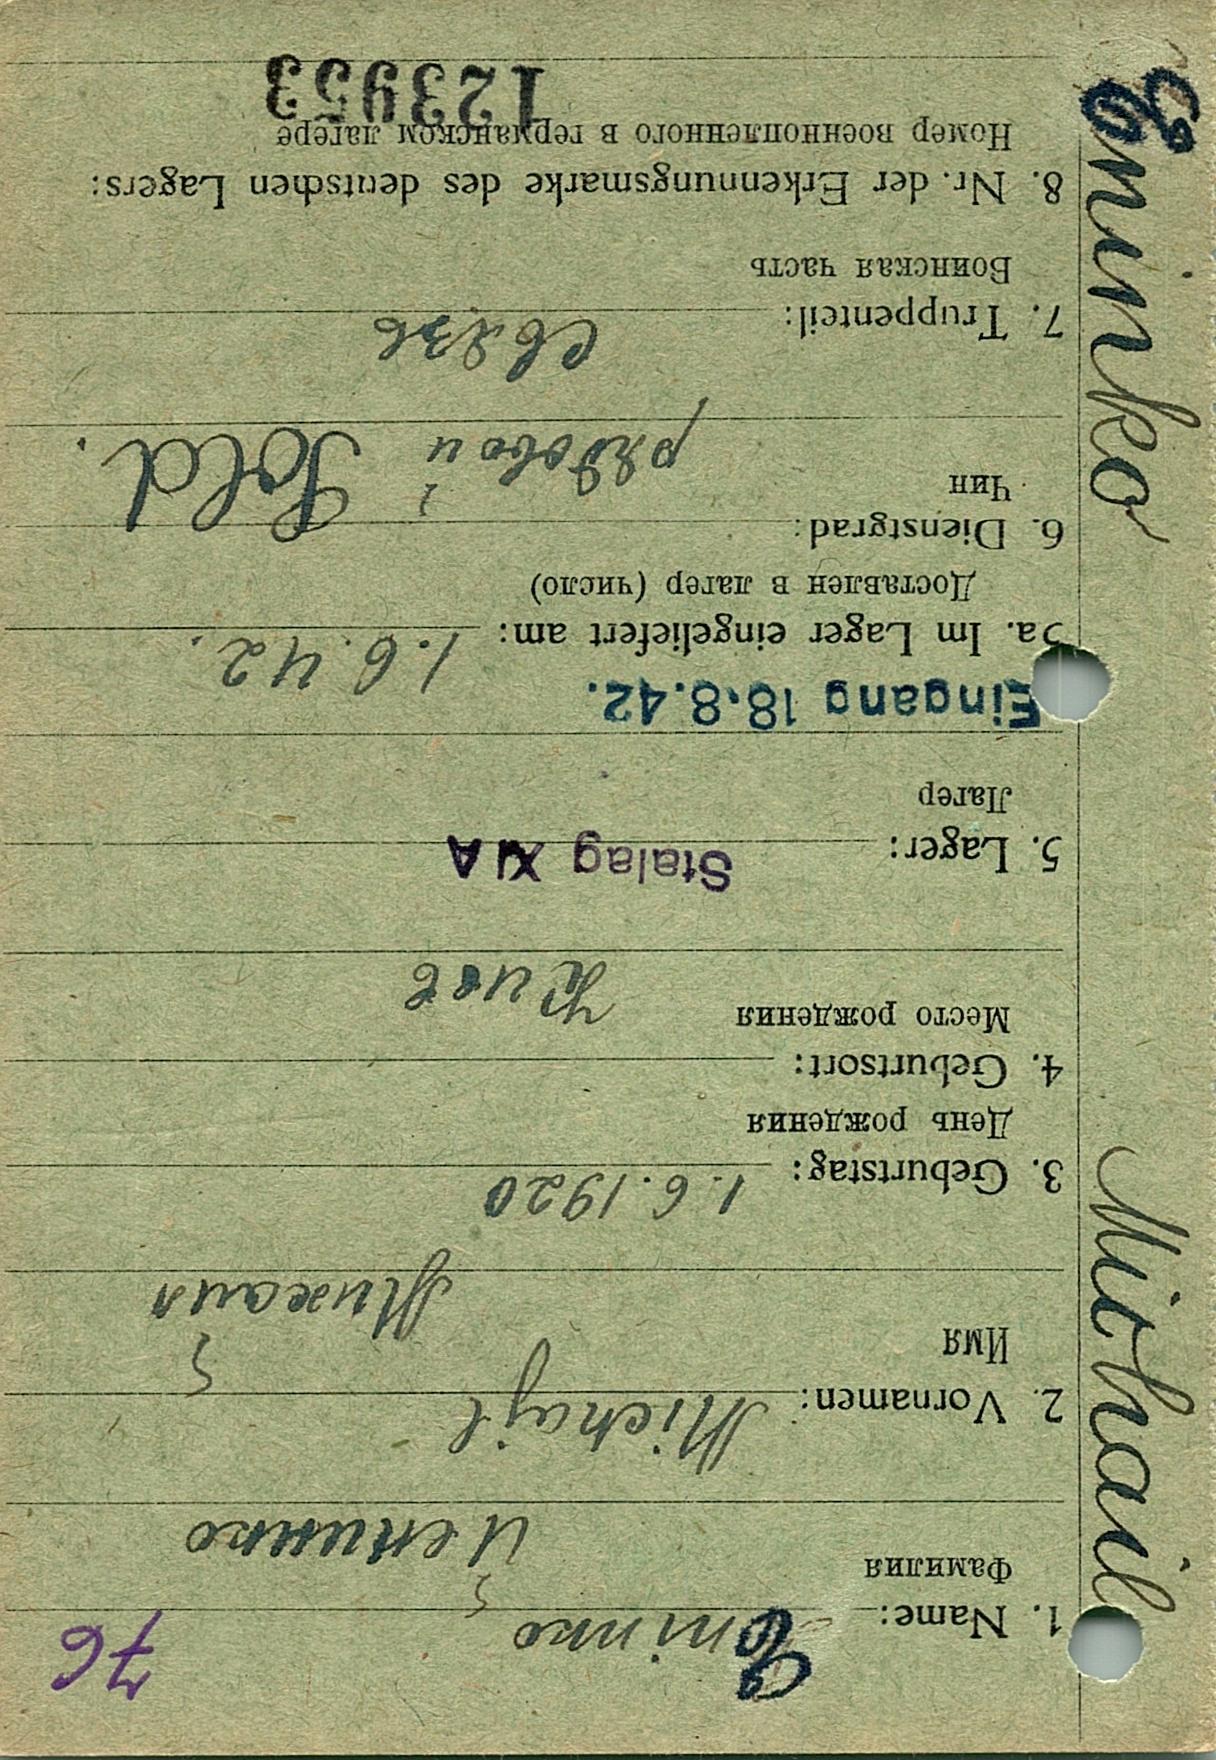 76
1. Name: Eminko
Фамилия
2. Vornamen: Michajl
Имя
Михаил
3. Geburtstag: 1.6.1920
День рождения
4. Geburtsort:
Место рождения Киев
5. Lager: Stalag XIA
Лагер
Eingang 18.8.42.
5a. Im Lager eingeliefert am: 1.6.42.
Доставлен в лагер (число)
6. Dienstgrad:
Чин рядовой Sold.
7. Truppenteil: связь
Воинская часть
8. Nr. der Erkennungsmarke des deutschen Lagers:
Номер военнопленного в германском лагере
123953
Eminko Michail